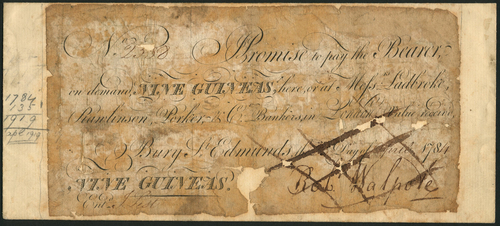 No.
Promise to pay the Bearer,
on demand, NINE GUINEAS, here, or at Messrs. Ladbroke,
Rawlinson, Porker & Co. Bankers in London Value Receiv'd
Bury St. Edmund's Day of 1784
NINE GUINEAS.
Robt. Walpole
Entd.
1784
135
1919